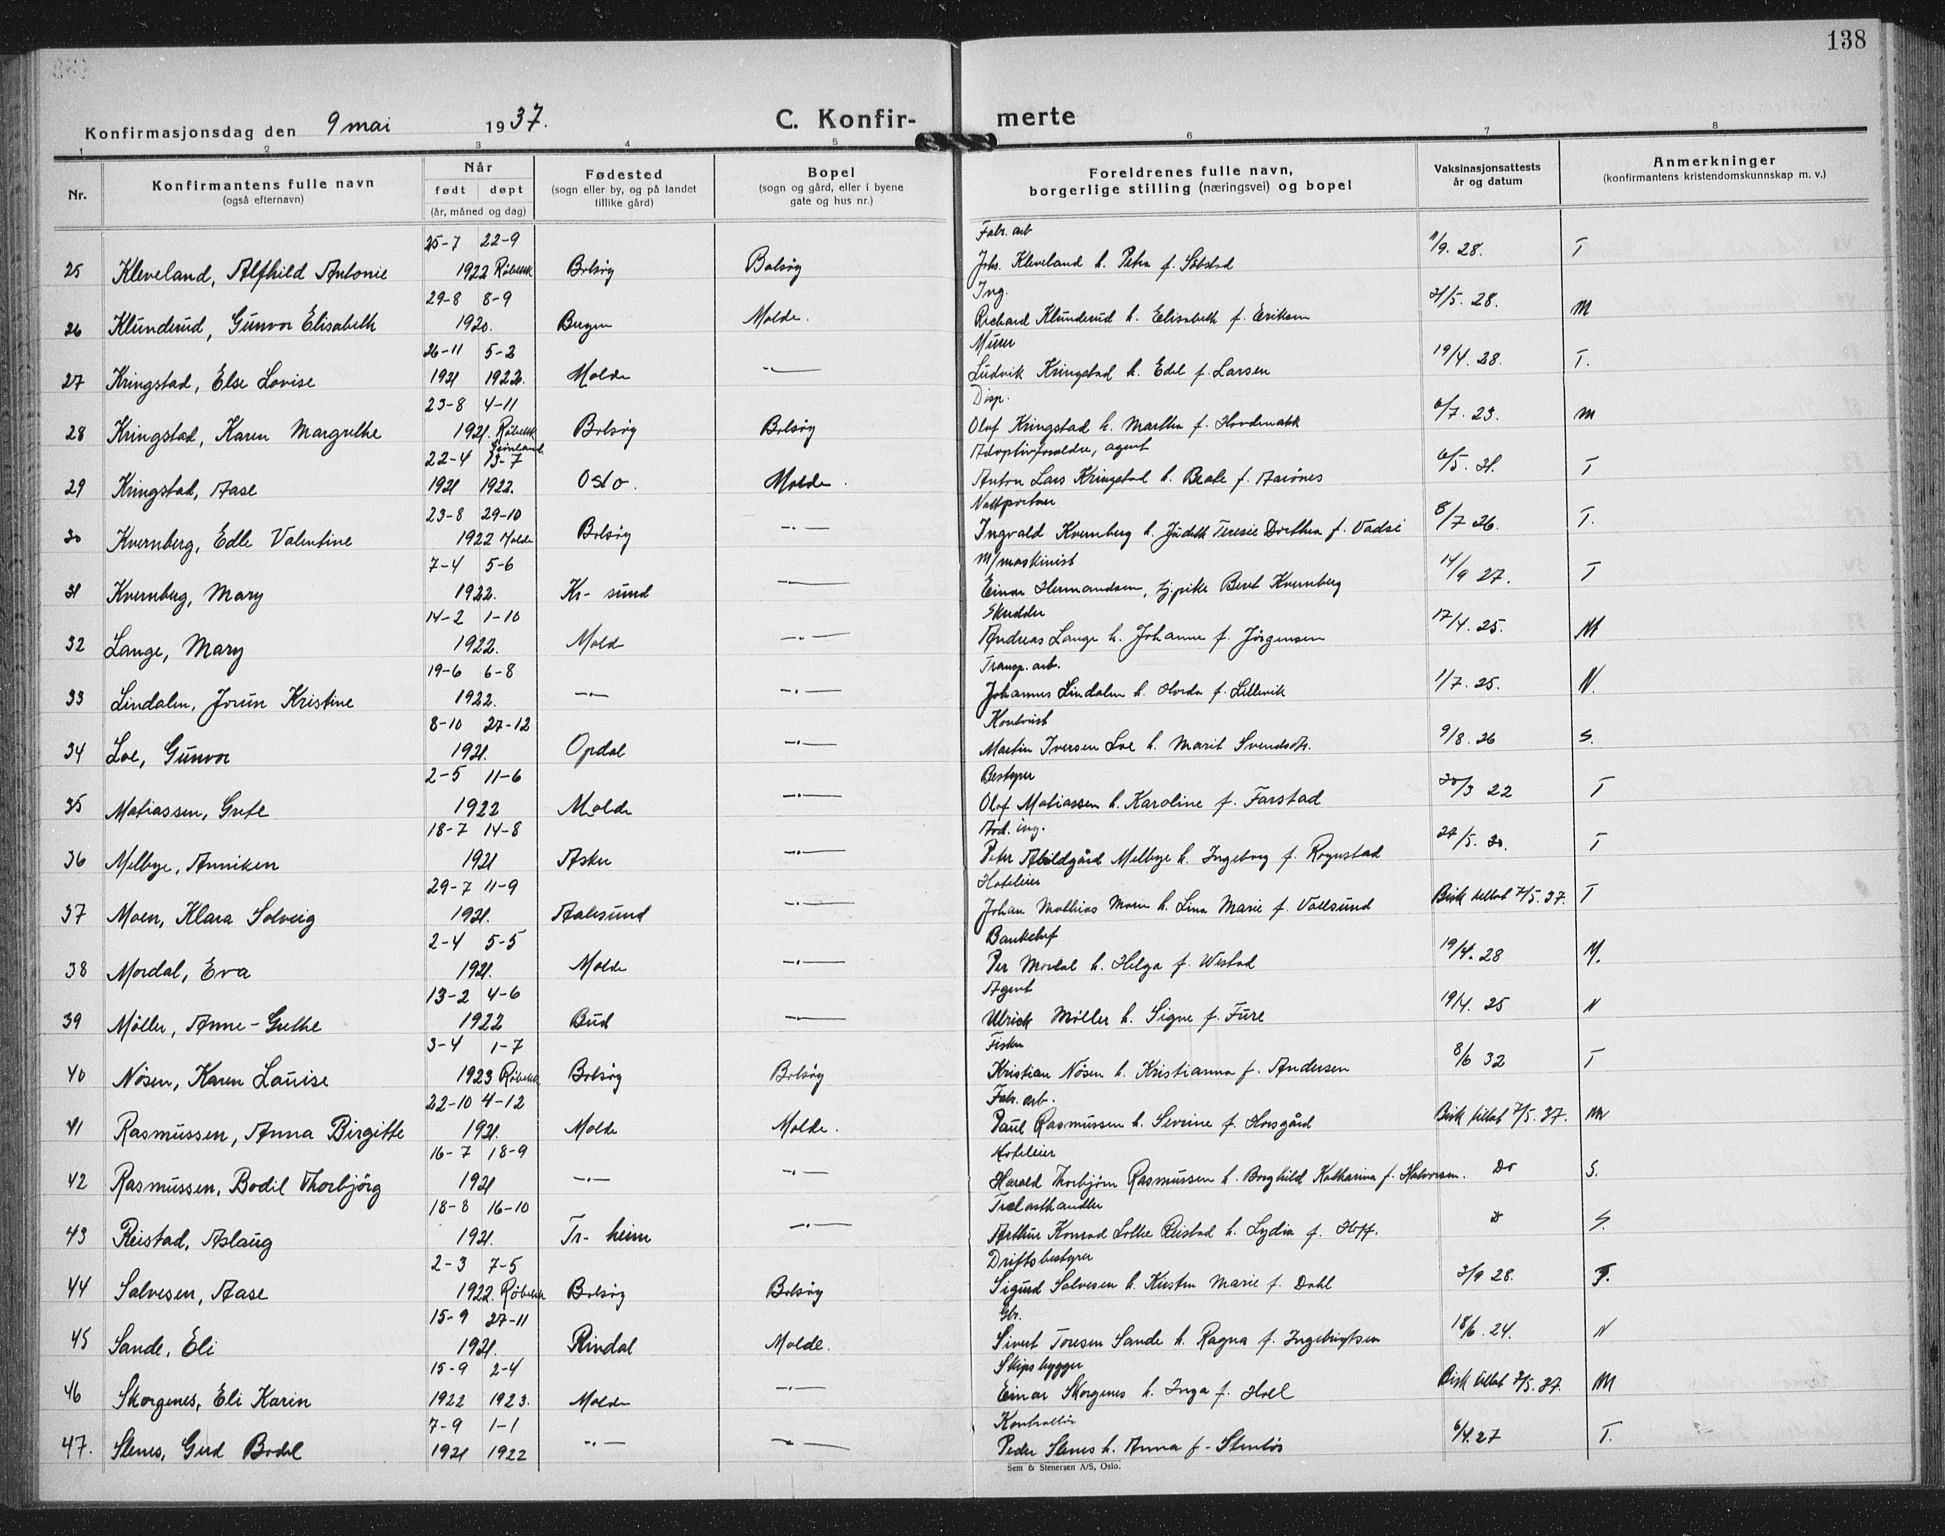 138
Konfirmasjonsdag den 9 mai 1937. C. Konfir- merte
1 2 3 4 5 6 7 8
Nr. Konfirmantens fulle navn (også efternavn) Når født døpt (år, måned og dag) Fødested (sogn eller by, og på landet tillike gård) Bopel (sogn og gård, eller i byene gate og hus nr.) Foreldrenes fulle navn, borgerlige stilling (næringsvei) og bopel Vaksinasjonsattests år og datum Anmerkninger (konfirmantens kristendomskunnskap m. v.)
25-7 22-9 Fabr. arb
25 Kleveland, Alfhild Antonie 1922 Røbekk Bolsøy Bolsøy Johs. Kleveland h. Petra f. Solstad 11/9. 28. T
29-8 8-9 Ing.
26 Klunderud, Gunvor Elisabeth 1920. Bergen Molde. Richard Klunderud h. Elisabeth f. Eriksen 31/5. 28. M
26-11 5-2 Murer
27 Kringstad, Else Lovise 1921 1922. Molde -"- Ludvik Kringstad h. Edel f. Larsen 19/4. 28. T.
23-8 4-11 Disp.
28 Kringstad, Karen Margrethe 1921. Røbekk Bolsøy Bolsøy Olaf Kringstad h. Martha f. Hovdenakk 6/7. 23. M
22-4 13-7 Grønland. Adoptivforeldre, agent
29 Kringstad, Aase 1921 1922. Oslo. Molde. Anton Lars Kringstad h. Beate f. Aarønes 6/5. 31. T
23-8 29-10 Nattportner
30 Kvernberg, Edle Valentine 1922 Molde Bolsøy -"- Ingvald Kvernberg h. Judith Teresie Dorthea f. Vadsø 8/7 26. T.
7-4 5-6 M/maskinist
31 Kvernberg, Mary 1922. Kr- sund -"- Einar Hermandsen, tj.pike Beret Kvernberg 14/9 27. T
14-2 1-10 Skredder
32 Lange, Mary 1922. Molde -"- Andreas Lange h. Johanne f. Jørgensen 17/4. 25. M
19-6 6-8 Transp. arb.
33 Lindalen, Jorun Kristine 1922. -"- -"- Johannes Lindalen h. Horda f. Lillevik 1/7. 25. N.
8-10 27-12 Kontorist
34 Loe, Gunvor 1921. Opdal -"- Martin Iversen Loe h. Marit Svendsdtr. 9/8. 26 S.
2-5 11-6 Bestyrer
35 Matiassen, Grete 1922 Molde -"- Olaf Matiassen h. Karoline f. Farstad 30/3 22 T
18-7 14-8 Avd. ing.
36 Melbye, Anniken 1921 Asker -"- Peter Abildgård Melbye h. Ingeborg f. Rognstad 27/5. 30. T
29-7 11-9 Hoteleier
37 Moen, Klara Solveig 1921. Aalesund -"- Johan Mathias Moen h. Lina Marie f. Vallsund Bisk tillat 7/5. 37. T
2-4 5-5 Bankchef
38 Mordal, Eva 1921. Molde -"- Per Mordal h. Helga f. Westad 19/4. 28 M.
13-2 4-6 Agent
39 Møller, Anne-Grethe 1922 Bud -"- Ulrick Møller h. Signe f. Fure 19/4. 25 N
3-4 1-7 Fisker
40 Nøsen, Karen Louise 1923 Røbekk Bolsøy Bolsøy Kristian Nøsen h. Kristianna f. Andersen 8/6 32 T
22-10 4-12 Fabr. arb.
41 Rasmussen, Anna Birgitte 1921. Molde Molde. Paul Rasmussen h. Sevrine f. Horsgård Bisk tillat 7/5. 37. M
16-7 18-9 Hoteleier
42 Rasmussen, Bodil Thorbjørg 1921 -"- -"- Harald Thorbjørn Rasmussen h. Borghild Katharina f. Halvorsen. Do S.
18-8 16-10 Trælasthandler
43 Reistad, Aslaug 1921. Tr- heim -"- Arthur Konrad Lothe Reistad h. Lydia f. Hoff. Do S.
2-3 7-5 Driftsbestyrer
44 Salvesen, Aase 1922. Røbekk Bolsøy Bolsøy Sigurd Salvesen h. Kirsten Marie f. Dahl 3/9 28. T.
15-9 27-11 Gbr.
45 Sande, Eli 1921. Rindal Molde. Sivert Toresen Sande h. Ragna f. Ingebrigtsen 18/6. 24. N
15-9 2-4 Skipsbygger
46 Skorgenes, Eli Karin 1922 1923. Molde -"- Einar Skorgenes h. Inga f. Hoel Bisk tillat 7/5. 37. M
7-9 1-1 Kontrollør
47. Stenes, Gerd Bodil 1921 1922 -"- -"- Peder Stenes h. Anna f. Stenløs 6/4. 27 T.
Sem & Stenersen A/S, Oslo.